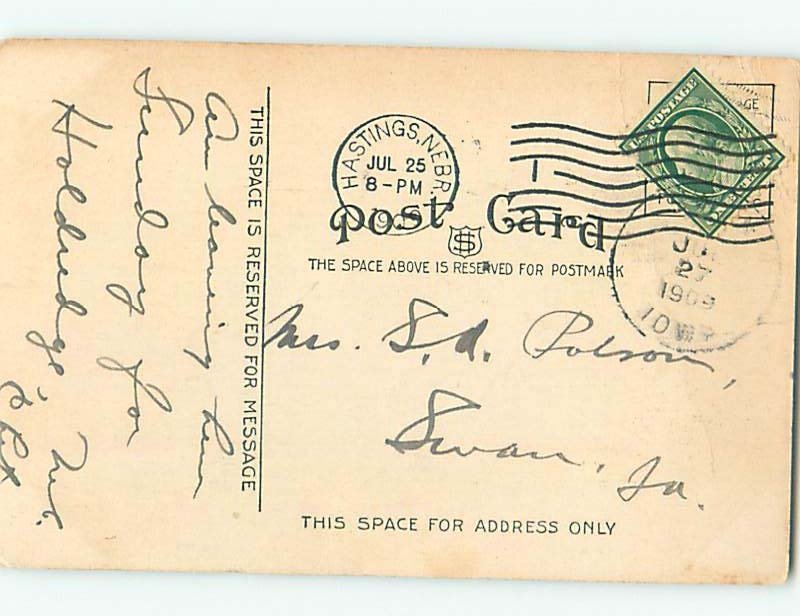 Am leaving here
Sunday for
Holdredge, Neb.
THIS SPACE IS RESERVED FOR MESSAGE
HASTINGS, NEBR.
JUL 25
8-PM
1909
U.S. POSTAGE
Post Card
THE SPACE ABOVE IS RESERVED FOR POSTMARK
27
1909
IOWA
Mrs. S. A. Polson,
Swan, Ia.
THIS SPACE FOR ADDRESS ONLY